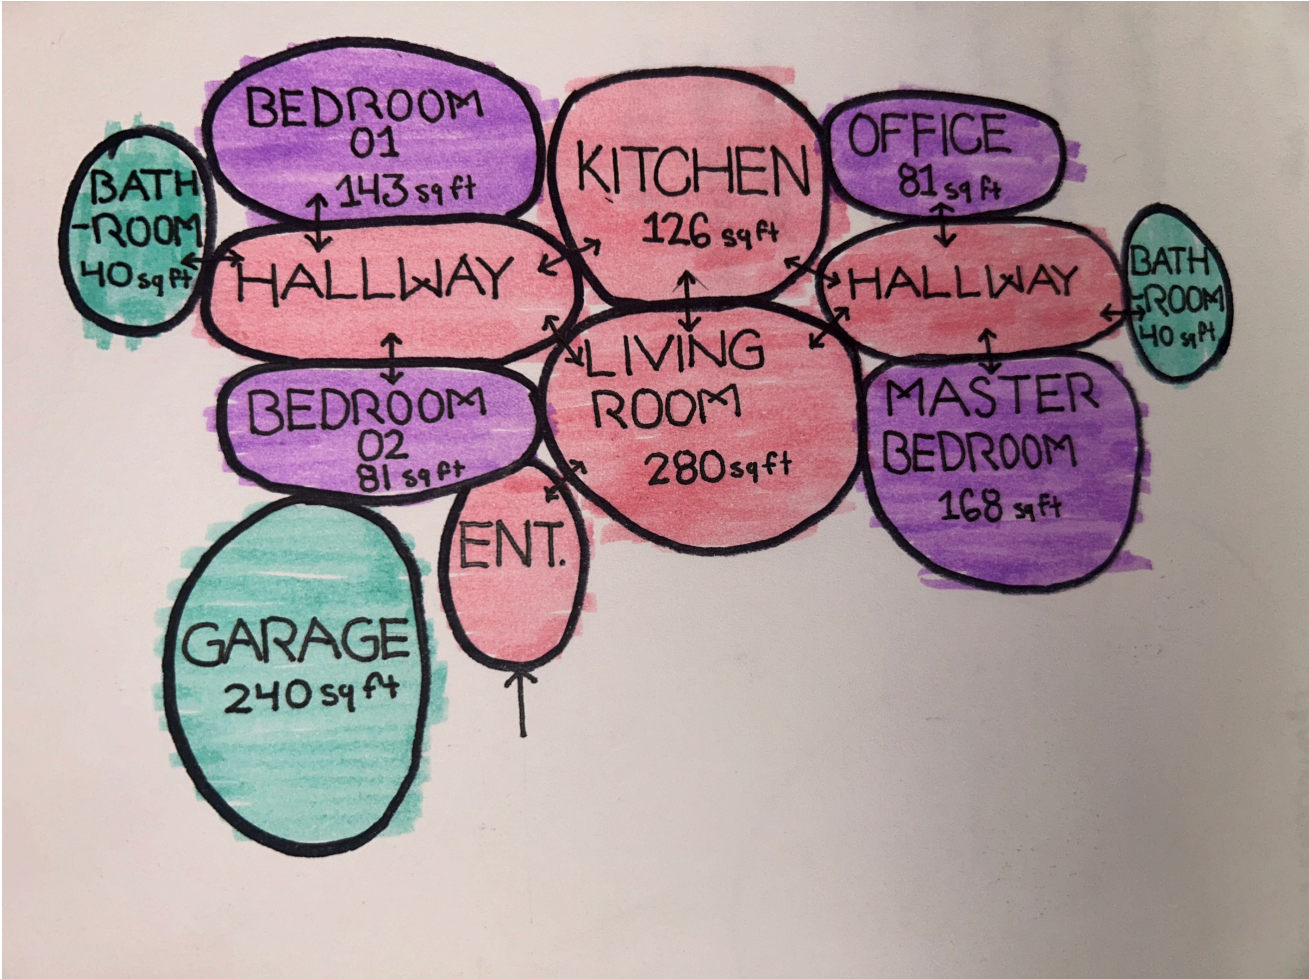 BEDROOM
01
143 sq ft
BATH
-ROOM
40 sq ft
KITCHEN
126 sq ft
OFFICE
81 sq ft
HALLWAY
HALLWAY
BATH
-ROOM
40 sq ft
BEDROOM
02
81 sq ft
LIVING
ROOM
280 sq ft
MASTER
BEDROOM
168 sq ft
ENT.
GARAGE
240 sq ft